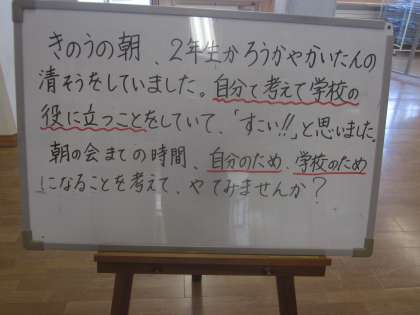 きのうの朝、2年生がろうかやかいだんの
清そうをしていました。自分で考えて学校の
役に立つことをしていて、「すごい!!」と思いました。
朝の会までの時間、自分のため、学校のため
になることを考えて、やてみませんか?